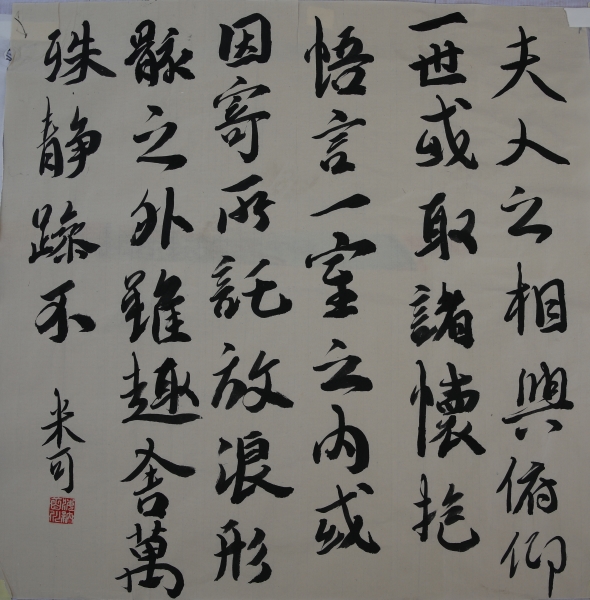 夫人之相與俯仰
一世或取諸懷抱
悟言一室之内或
因寄所託放浪形
骸之外雖趣舍萬
殊静躁不
米可